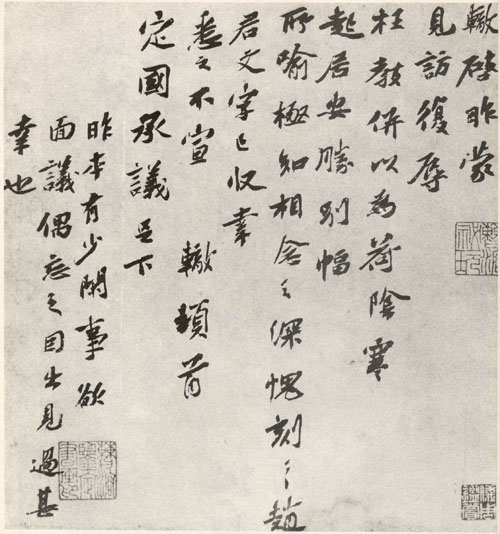 轍啓昨蒙
見訪復辱
枉教併以為荷陰寒
起居安勝別幅
所喻極知相念之深愧刻〻趙
君文字已収幸
悉之不宣　轍頓首
定國承議足下
昨本有少閑事欲
面議偶忘之因出見過甚
幸也